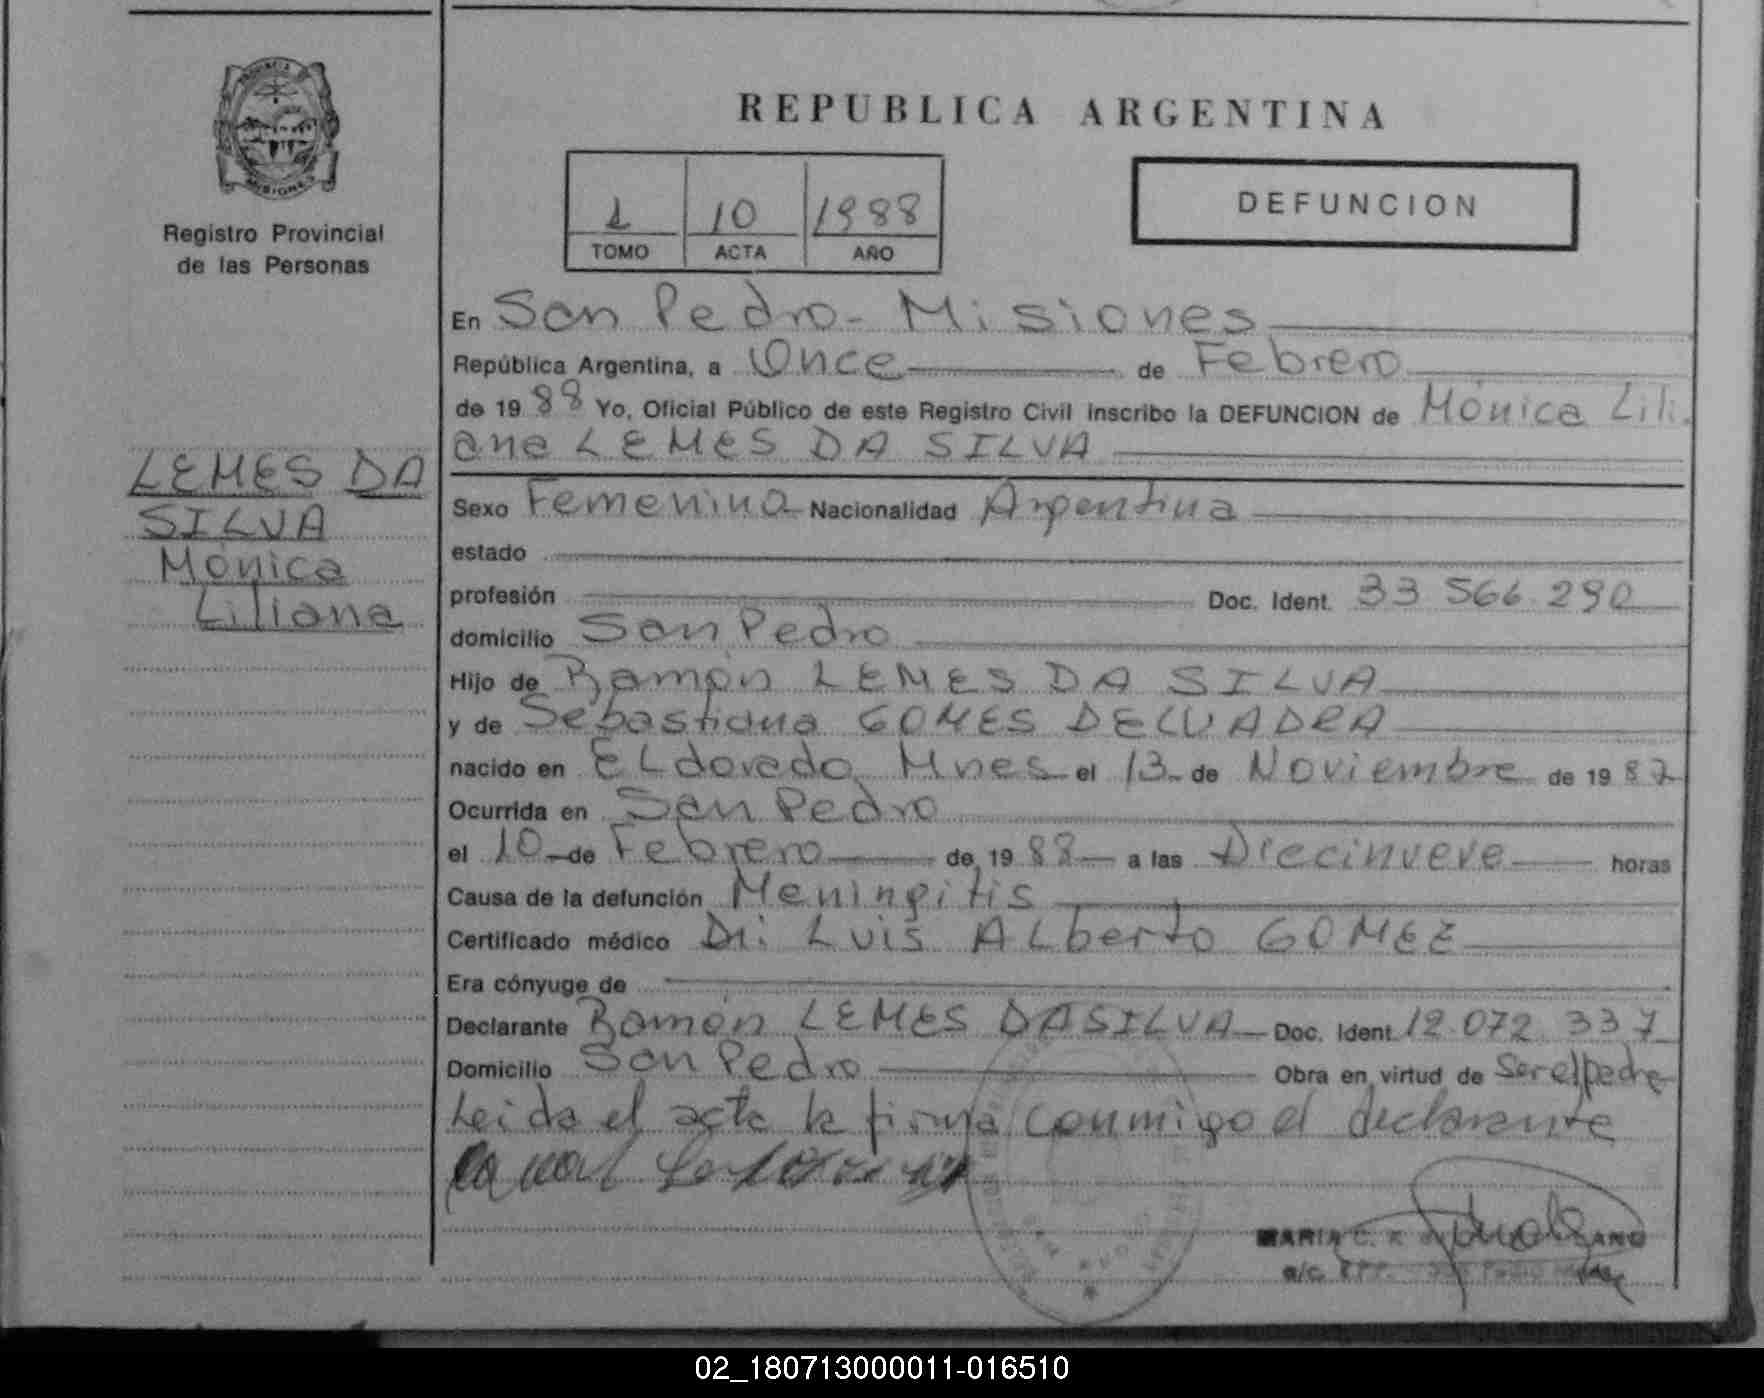 REPUBLICA ARGENTINA
PROVINCIA
MISIONES
Registro Provincial
de las Personas
1 10 1988
TOMO ACTA AÑO
DEFUNCION
En San Pedro - Misiones
República Argentina, a Once de Febrero
de 1988 Yo, Oficial Público de este Registro Civil inscribo la DEFUNCION de Mónica Lili
ana LEMES DA SILVA
LEMES DA
SILVA
Mónica
Liliana
Sexo Femenina Nacionalidad Argentina
estado
profesión Doc. Ident. 33 566.290
domicilio San Pedro
Hijo de Ramón LEMES DA SILVA
y de Sebastiana GOMES DECUADRA
nacido en ELdorado Mnes el 13 de Noviembre de 1987
Ocurrida en San Pedro
el 10 de Febrero de 1988 a las Diecinueve horas
Causa de la defunción Meningitis
Certificado médico Dr: Luis ALberto GOMEZ
Era cónyuge de
Declarante Ramón LEMES DASILVA Doc. Ident. 12.072.337
Domicilio San Pedro Obra en virtud de Ser el padre
Leida el acta la firma conmigo el declarante
MARIA
02_180713000011-016510